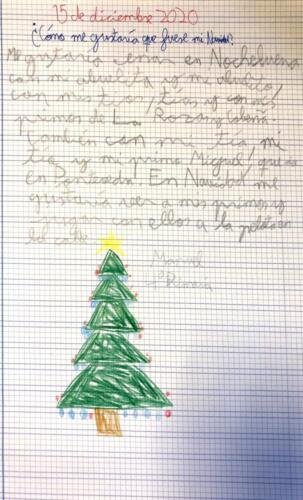 15 de diciembre 2020
¿Cómo me gustaría que fuese mi Navidad?
Me gustaría cenar en Nochebuena
con mi abuelita y mi abuelito,
con mis tíos, tías y con mis
primos de La Rozas y Cobeña.
Tambien con mi tía, mi
tío y mi primo Miguel, que
en Pontevedra. En Navidad me
gustaria ver a mis primos y
jugar con ellos a la pelota en
la calle.
Manuel
1º Primaria